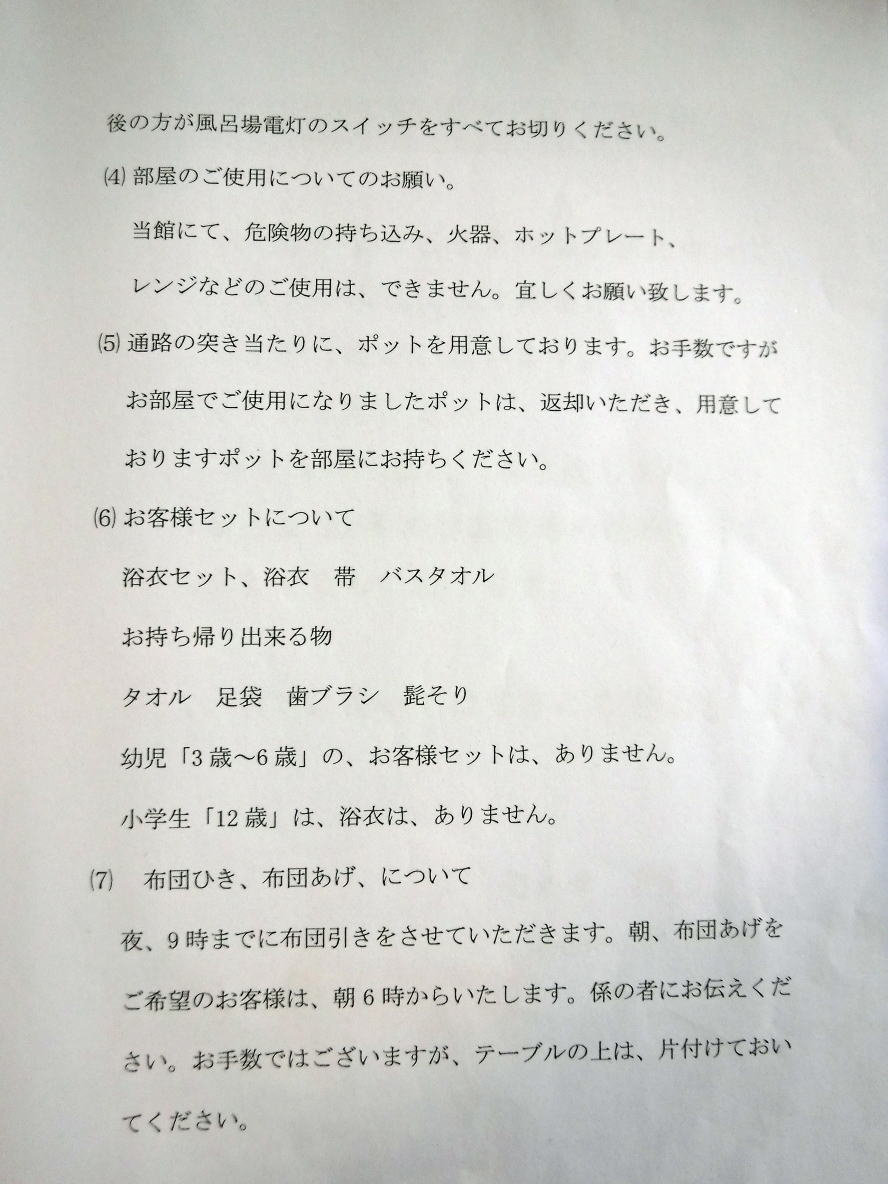 後の方が風呂場電灯のスイッチをすべてお切りください。
⑷ 部屋のご使用についてのお願い。
当館にて、危険物の持ち込み、火器、ホットプレート、
レンジなどのご使用は、できません。宜しくお願い致します。
⑸ 通路の突き当たりに、ポットを用意しております。お手数ですが
お部屋でご使用になりましたポットは、返却いただき、用意して
おりますポットを部屋にお持ちください。
⑹ お客様セットについて
浴衣セット、浴衣　帯　バスタオル
お持ち帰り出来る物
タオル　足袋　歯ブラシ　髭そり
幼児「3 歳～6 歳」の、お客様セットは、ありません。
小学生「12 歳」は、浴衣は、ありません。
⑺　布団ひき、布団あげ、について
夜、9 時までに布団引きをさせていただきます。朝、布団あげを
ご希望のお客様は、朝 6 時からいたします。係の者にお伝えくだ
さい。お手数ではございますが、テーブルの上は、片付けておい
てください。